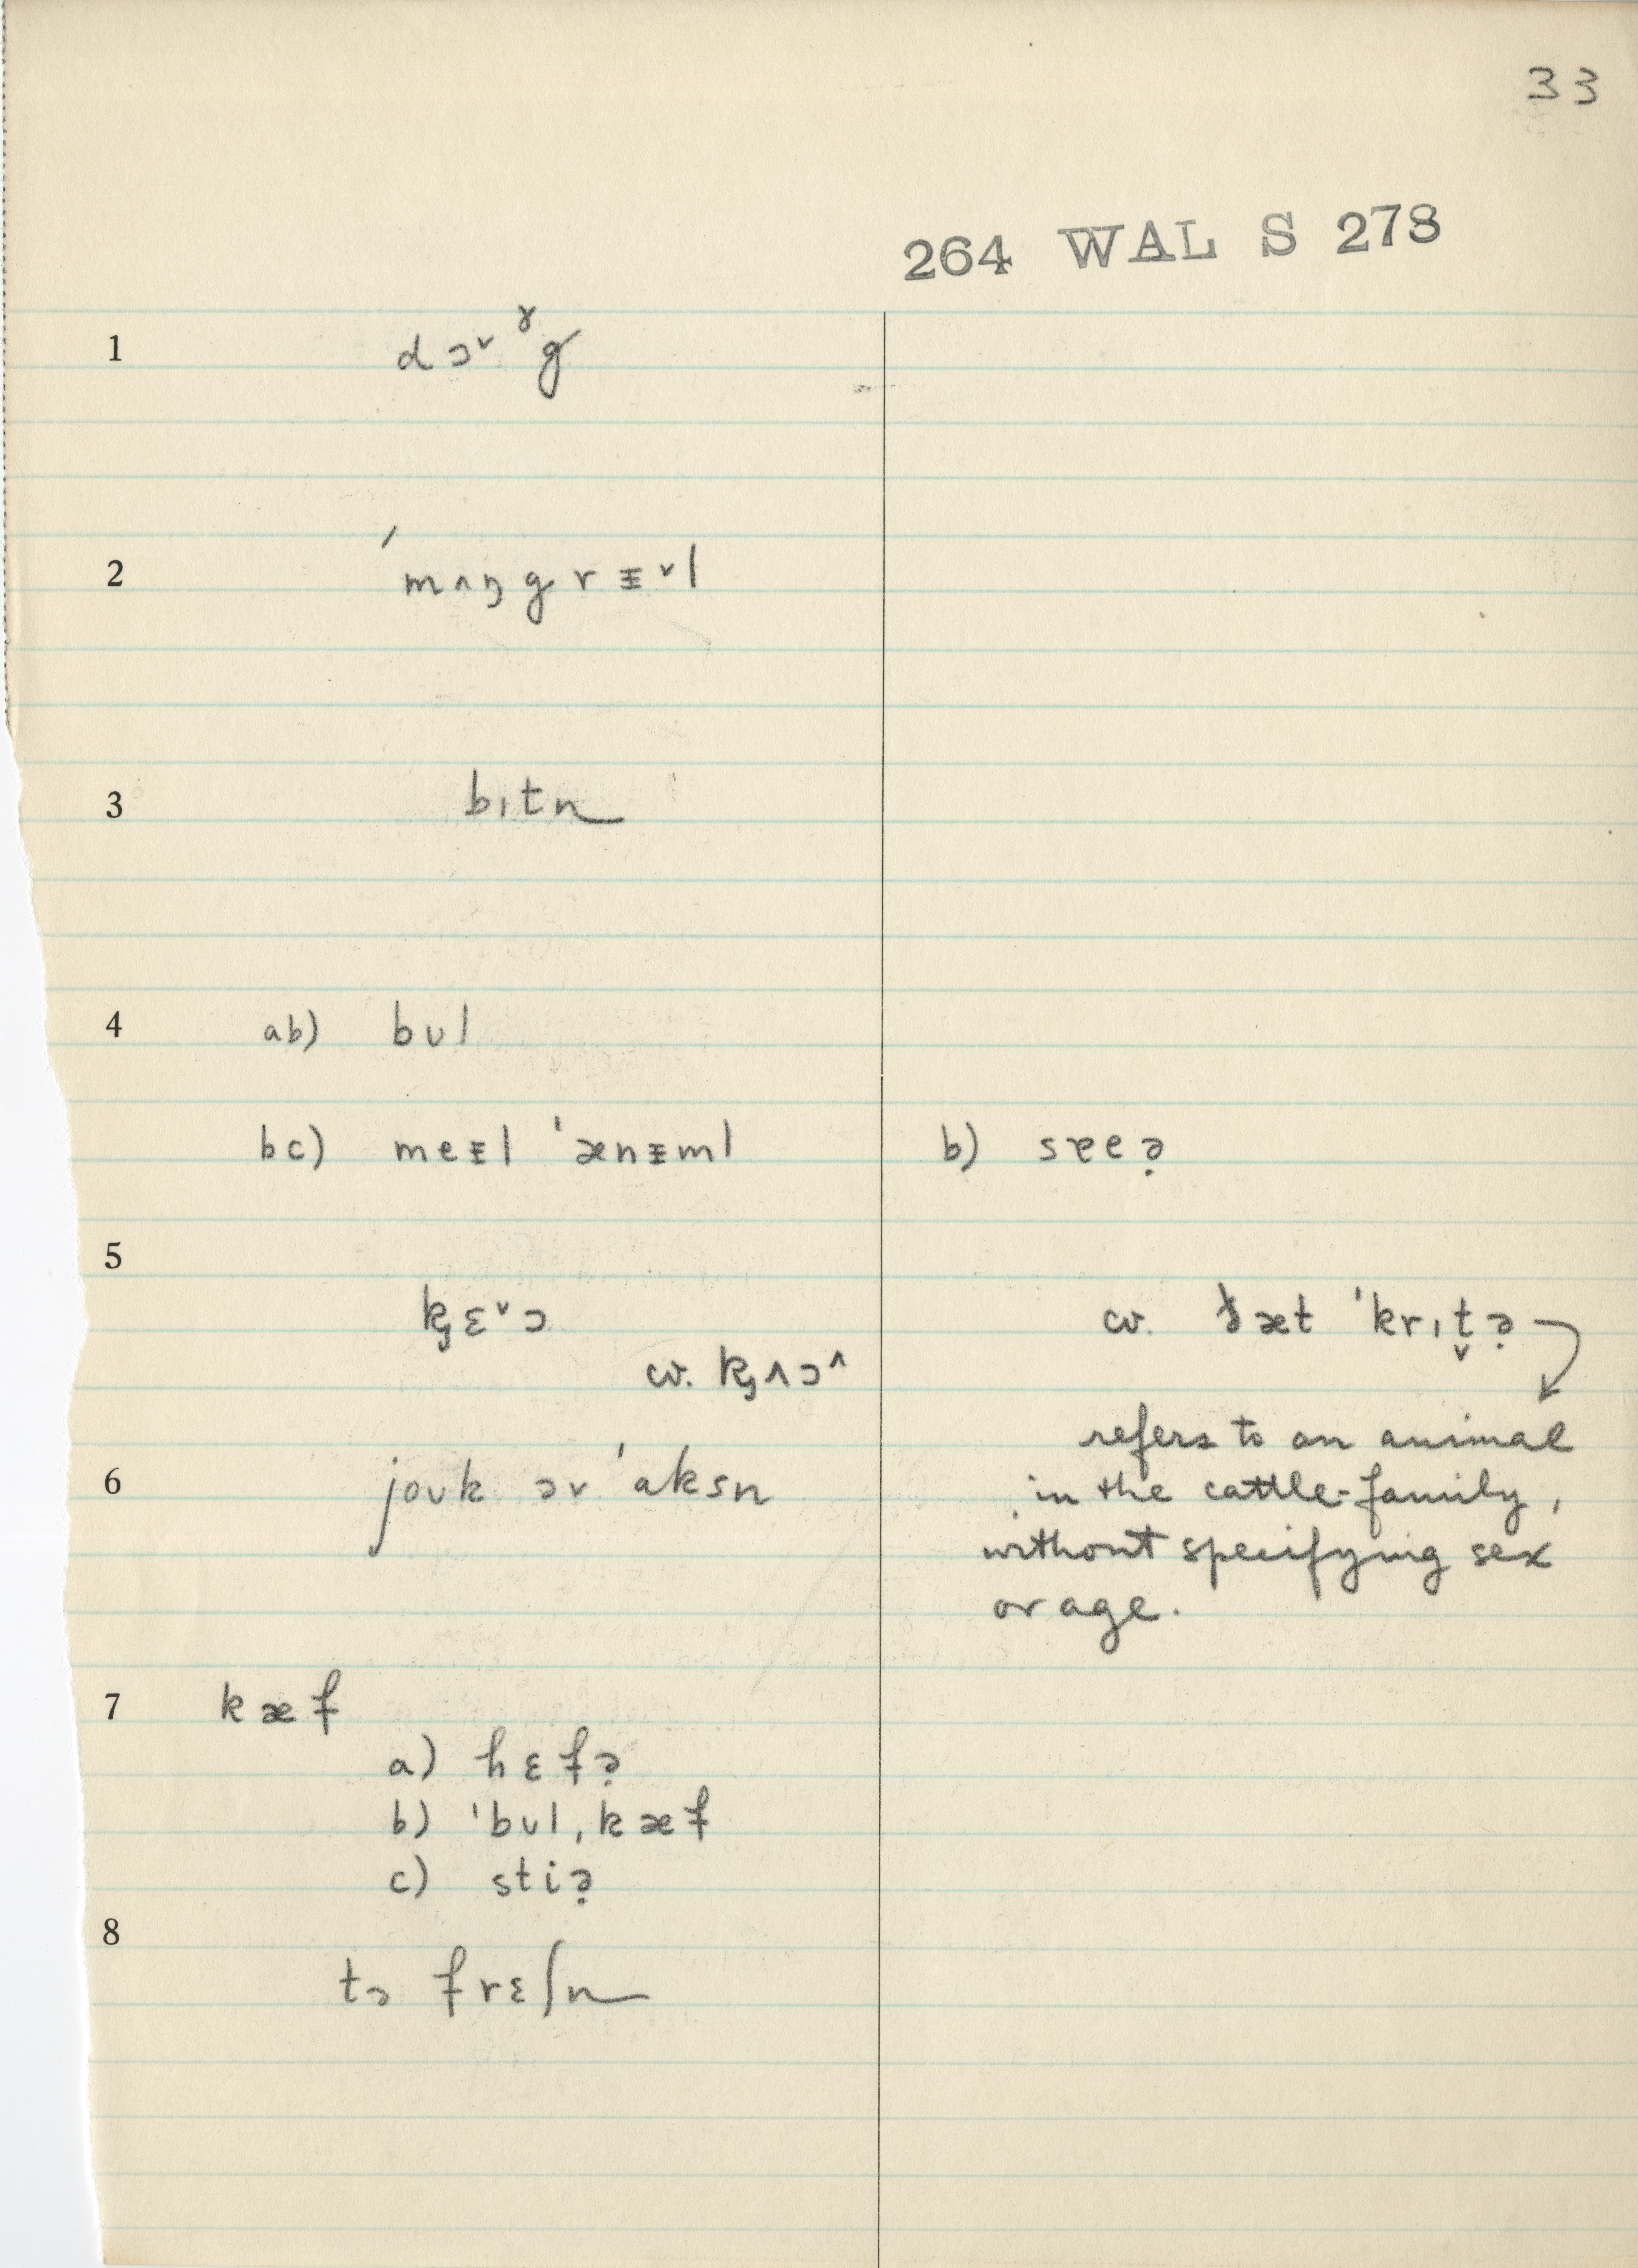 33
264 WAL S 278
1 dɔᵛ ˠg
2 ˈmʌŋgrᵻᵛl
3 bɪtn
4 ab) bʊl
bc) meᵻl ˈænᵻml
b) sɐeə̣
5
k̡ɛᵛɔ
cv. k̡ʌɔ^
cv. ðæt ˈkrɪt̬ə̣
refers to an animal
in the cattle-family,
without specifying sex
or age.
6 joʊk ər ˈɑksn
7 kæf
a) hɛfə̣
b) ˈbʊl,kæf
c) stiə̣
8
tə frɛʃn